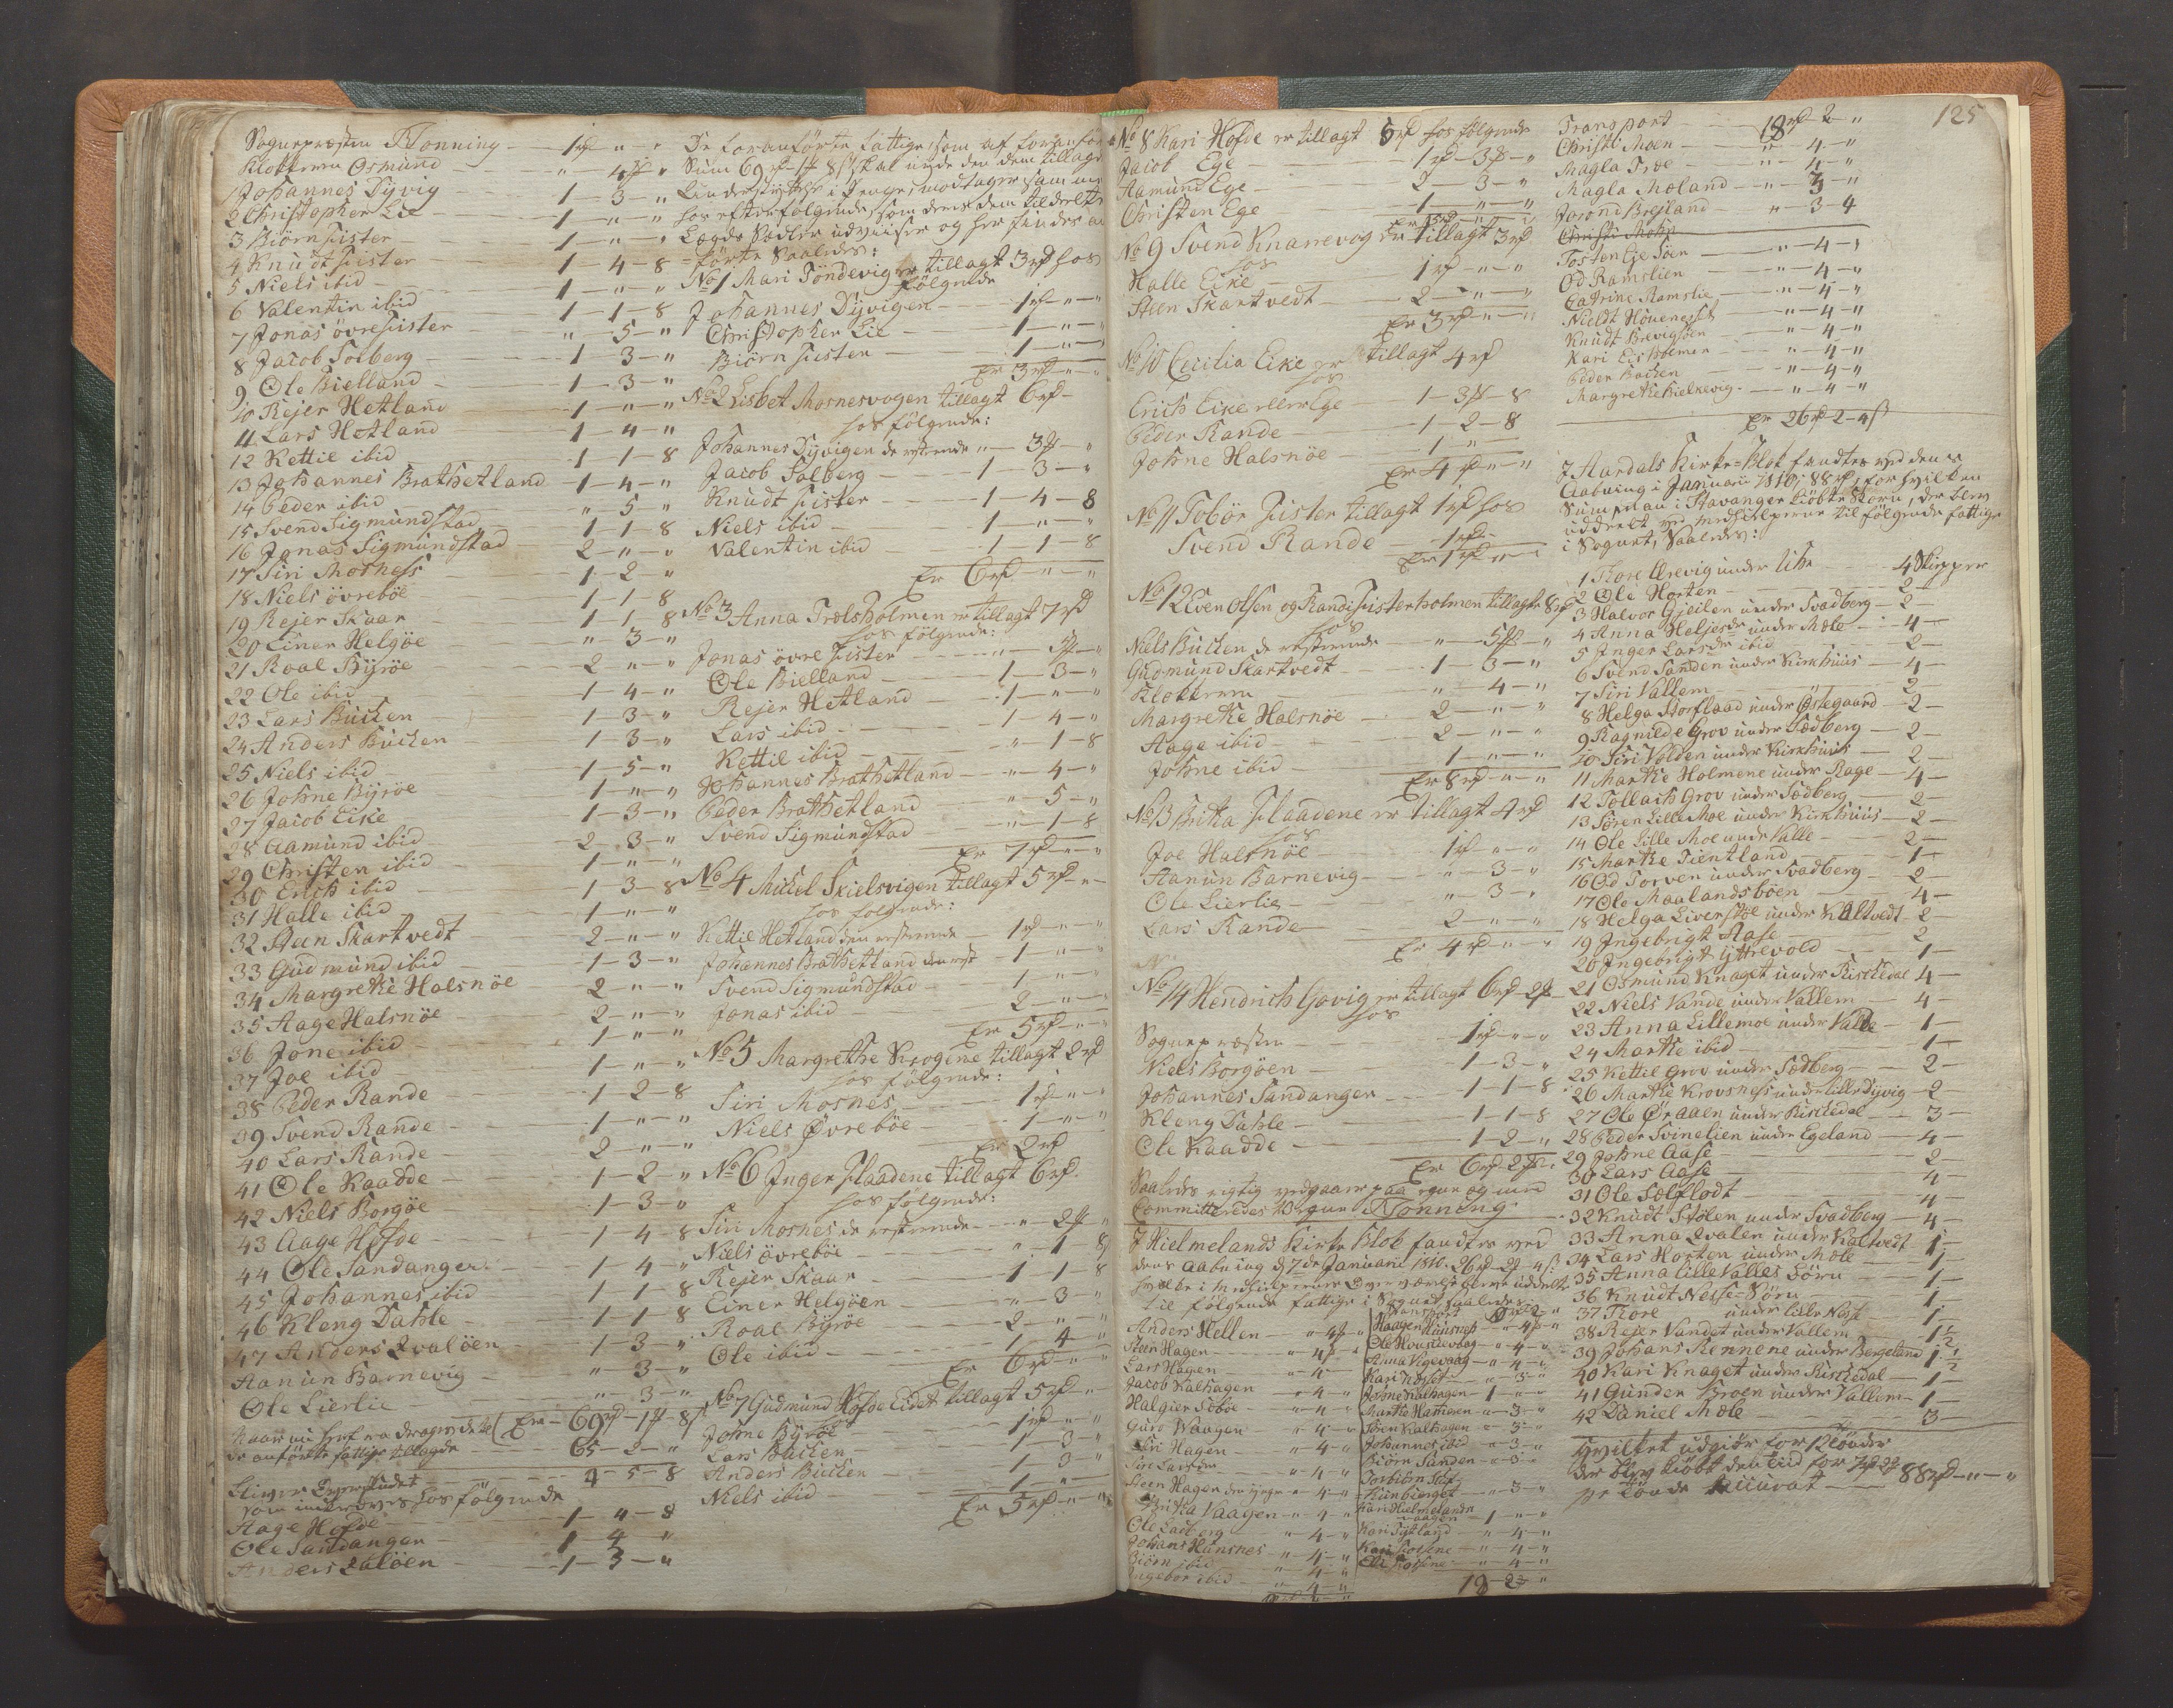 Sognepræsten Rönning — 1rd " — "
Klokkeren Osmund — " — 4ß "
1 Johannes Dyvig — 1 — 3 — "
2 Christopher Lie — 1 — " — "
3 Biörn Fister — 1 — " — "
4 Knudt Fister — 1 — 4 — 8
5 Niels ibid — 1 — " — "
6 Valentin ibid — 1 — 1 — 8
7 Jonas övre Fister — " 5 — "
8 Jacob Solberg — 1 3 — "
9 Ole Bielland — 1 — 3 — "
10 Rejer Hetland — 1 — " — "
11 Lars Hetland — 1 — 4 — "
12 Kettil ibid — 1 — 1 — 8
13 Johannes Brathetland — 1 — 4 — "
14 Peder ibid — " 5 — "
15 Svend Sigmundstad — 1 — 1 — 8
16 Jonas Sigmundstad — 2 — " — "
17 Siri Mosnes — 1 — 2 — "
18 Niels övreböe — 1 — 1 — 8
19 Rejer Skaar — 1 — 1 8
20 Einer Helgöe — " — 3 — "
21 Roal Byröe — 2 " — "
22 Ole ibid — 1 — 4 — "
23 Lars Buchen — 1 — 3 — "
24 Anders Buchen — 1 — 3 — "
25 Niels ibid — 1 — 5 — "
26 Johne Byröe — 1 — " — "
27 Jacob Eike — 1 — 3 — "
28 Aamund ibid — 2 3 — "
29 Christen ibid — 1 — " — "
30 Erich ibid — 1 3 — 8
31 Halle ibid — 1 — " — "
32 Steen Skartvedt — 2 — " — "
33 Gudmund ibid — 1 — 3 — "
34 Margrethe Halsnöe — 2 — " — "
35 Aage Halsnöe — 2 — " — "
36 Jone ibid — 1 — " — "
37 Joe ibid — 1 — " — "
38 Peder Rande — 1 — 2 — 8
39 Svend Rande — 1 — " — "
40 Lars Rande — 2 — " — "
41 Ole Kaadde — 1 — 2 — "
42 Niels Borgöe — 1 — 3 — "
43 Aage Hofde — 1 — 4 — 8
44 Ole Sandanger — 1 — 4 — "
45 Johannes ibid — 1 — 1 — 8
46 Kleng Dahle — 1 — 1 — 8
47 Anders Qvalöen — 1 — 3 — "
Aanun Barnevig — " — 3 — "
Ole Lierlie — " — 3 — "
Er — 69rd — 1ß — 8
de anförte fattige tillagde — 65 — 2 — "
bliver Overskudet — 4 — 5 — 8
som hos følgende
Aage Hofde — 1 — 4 — 8
Ole Sandanger — 1 4 "
Anders Qvalöen — 1 — 3 — "
De foranförte fattige, som af foranför
hos efterfølgende, som deres dem tildeelte
förte saaledes:
No 1 Mari Töndevig er tillagt 3rd hos
følgende
Johannes Dyvigen — 1rd " — "
Christopher Lie — 1 — " — "
Biörn Fister — 1 — " —
Er 3rd — " — "
No 2 Lisbet Mosnesvogen tillagt 6rd —
hos følgende:
Johannes Dyvigen de resterende — " — 3ß — "
Jacob Solberg — 1 — 3 — "
Knudt Fister — 1 — 4 — 8
Niels ibid — 1 — " — "
Valentin ibid — 1 — 1 — 8
Er 6rd — " — "
No 3 Anna Trolsholmen er tillagt 7rd
hos følgende:
Jonas övre Fister — " — 5ß — "
Ole Bielland — 1 — 3 — "
Rejer Hetland — 1 — " — "
Lars ibid — 1 — 4 — "
Kettil ibid — " — 1 — 8
Johannes Brathetland — " — 4 — "
Peder Brathetland — " 5 — "
Svend Sigmundstad — " — 1 — 8
Er 7rd — " — "
No 4 Michel Skielsvigen tillagt 5rd — " —
hos følgende:
Kettil Hetland den resterende — 1rd — " — "
Johannes Brathetland den rest — 1 — " — "
Svend Sigmundstad — 1 — " — "
Jonas ibid — 2 — " — "
Er 5rd — " — "
No 5 Margrethe Krogene tillagt 2rd
hos følgende:
Siri Mosnes — 1rd — " — "
Niels Øvreböe — 1 — " — "
Er 2rd
No 6 Inger Flaadene tillagt 6rd.
hos følgende:
Siri Mosnes de resterende — " — 2ß "
Niels övreböe — " — 1 8
Rejer Skaar — 1 1 — 8
Einer Helgöen — " — 3 — "
Roal Byröe — 2 — " — "
Ole ibid — 1 — 4 — "
Er 6rd — " — "
No 7 Gudmund Hofde Eidet tillagt 5rd — "
hos
Johne Byröe — 1rd — " — "
Lars Buchen — 1 3 — "
Anders Buchen — 1 3 "
Niels ibid — 1 — " —
Er 5rd — " — "
No 8 Kari Hofde er tillagt 5rd hos følgende
Jacob Ege — 1rd — 3ß — "
Aamund Ege — 2 — 3 — "
Christen Ege — 1 — " — "
Er 5rd — " — "
No 9 Svend Knarrevog er tillagt 3rd
hos
Halle Eike — 1rd — " — "
Steen Skartvedt — 2 — " — "
Er 3rd — " — "
No 10 Cecilia Eike er tillagt 4rd
hos
Erich Eike eller Ege — 1 — 3ß — 8
Peder Rande — 1 — 2 — 8
Johne Halsnöe — 1 — "
Er 4rd — " — "
No 11 Tobör Fister tillagt 1rd hos
Svend Rande — 1rd —
Er 1rd — " —
No 12 Even Olsen og Randi Fisterholmen tillagt 8rd
hos
Niels Buchen de resterende — " — 5ß — "
Gudmund Skartvedt — 1 — 3 — "
Klokkeren — " — 4 — "
Margrethe Halsnöe — 2 — " — "
Aage ibid — 2 — " — "
Johne ibid — 1 — " — "
Er 8rd — " — "
No 13 Britha Flaadene er tillagt 4rd
hos
Joe Halsnöe — 1rd — " — "
Aanun Barnevig — " — 3 — "
Ole Lierlie — " 3 — "
Lars Rande — 2 — " — "
Er 4rd — " — "
No 14 Hendrich Govig er tillagt 6rd — 2ß —
hos
Sognepræsten — 1rd — " — "
Niels Borgöen — 1 — 3 — "
Johannes Sandanger — 1 — 1 — 8
Kleng Dahle — 1 — 1 — 8
Ole Kaadde — 1 — 2 — "
Er 6rd — 2ß — "
Saaledes rigtig vedgaaer paa egne og med
Committeredes Vegne Rönning
I Hielmelands Kirke Blok fandtes ved
dens Aabning d 7de Januarii 1810. 26rd — 2ß — 4ß
til følgende fattige i Sognet saaledes:
Anders Hellen — " 4ß "
Steen Hagen — " 4ß "
Lars Hagen — " 4 — "
Jacob Kalhagen — " 4 — "
Halgier Söböe — " — 4 — "
Guro Waagen — " 4 — "
Siri Hagen — " 4 — "
Siri Larsdr — " 4 — "
Steen Hagen den yngre — " 4 — "
Britha Vaagen — " — 4 — "
Ole Ladberg — " 4 — "
Johans Hunsnes — " 4 — "
Biörn ibid — " 4 — "
Ingebor ibid — " 4 — "
Transport
Haagen Hunsnes — " — 4ß — "
Anna Vigevaag — " — 4 — "
Johne Kalhagen — 1 — " — "
Marthe Hatteren — " — 3 — "
Sören Kalhagen — " — 3 — "
Johannes ibid — " — 3 — "
Biörn Sanden — " — 3 — "
— 3 — "
Kari Hielmelands
vaagen — 1 — " — "
Kari Tytland — " — 4 — "
— " — 4 — "
— " — 4 — "
18 — 2 — "
125
Transport — 18rd 2 — "
Christi Moen — " — 4 — "
Magla Troe — " — 4 — "
Magla Moland — " — 3 — "
Jorond Bresland — " — 3 — 4
Tosten Eje Söen — " — 4 — "
Od Ramslien — " — 4 — "
Catrine Ramslie — " — 4 — "
Nieldt Houeness — " — 4 — "
Knudt Brevigsöen — " — 4 — "
Kari Eisholmen — " — 4 — "
Peder Bachen — " — 4 — "
Margrethe Kielkevig — " — 4 — "
Er 26rd — 2 — 4ß
I Aardals Kirke-Blok fandtes ved dens
Aabning i Januarii 1810, 88rd, for hvilken
Sum man i Stavanger kiøbte Korn, der blev
uddeelt ved Medhielperne til følgende fattige
i Sognet, saaledes:
1 Thore Ørevig under Uhe — 4 Skiepper
2 Ole Horten — 2 —
3 Halvor Gjeilen under Svadberg — 2 —
4 Anna Heljesdr under Mæle — 4 —
5 Inger Larsdr ibid — 2 —
6 Svend Sanden under Kirkhuus — 4 —
7 Siri Vallem — 2 —
8 Helga Storflaad under Østegaard — 2 —
9 Ragnilde Grov under Sædberg — 2 —
10 Siri Volden under Kirkhuus — 2 —
11 Marthe Holmene under Rage — 4 —
12 Tollach Grov under Sædberg — 2 —
13 Sören Lille Moe under Kirkhuus — 2 —
14 Ole Lille Moe under Valle — 2 —
15 Marthe Tientland — 1 —
16 Od Torven under Svadberg — 2 —
17 Ole Maalandsböen — 4 —
18 Helga Liverstöe under Kaltvedt — 2 —
19 Ingebrigt Aase — 2
20 Ingebrigt Yttrevold — 1 —
21 Osmund Knaget under Riskedal — 4 —
22 Niels Vande under Vallem — 4 —
23 Anna Lillemoe under Valle — 1 —
24 Marthe ibid — 1 —
25 Kettil Grov under Sædberg — 2 —
26 Marthe Krovsness under lille Dyvig — 2 —
27 Ole Øraaen under Riskedal — 3 —
28 Peder Svinelien under Egeland — 4 —
29 Johne Aase — 2 —
30 Lars Aase — 4 —
31 Ole Sælflodt — 4 —
32 Knudt Stölen under Svadberg — 4 —
33 Anna Qvalen under Kaltvedt — 1 —
34 Lars Horten under Mæle — 1 —
35 Anna lille Valles Börn — 1 —
36 Knudt Nesse-Börn — 1 —
37 Thore under lille Nesse — 1 —
38 Rejer Vandet under Vallem — 1 1/2
39 Johans Rennene under Bergeland 1 1/2
40 Kari Knaget under Riskedal — 1 —
41 Gunder Broen under Vallem — 1 —
42 Daniel Mæle — 3 —
Hvilket udgiør for 12 tönder
der blev kiøbt den tid for 7rd 2ß
pr tönde Accurat — 88rd — " — "